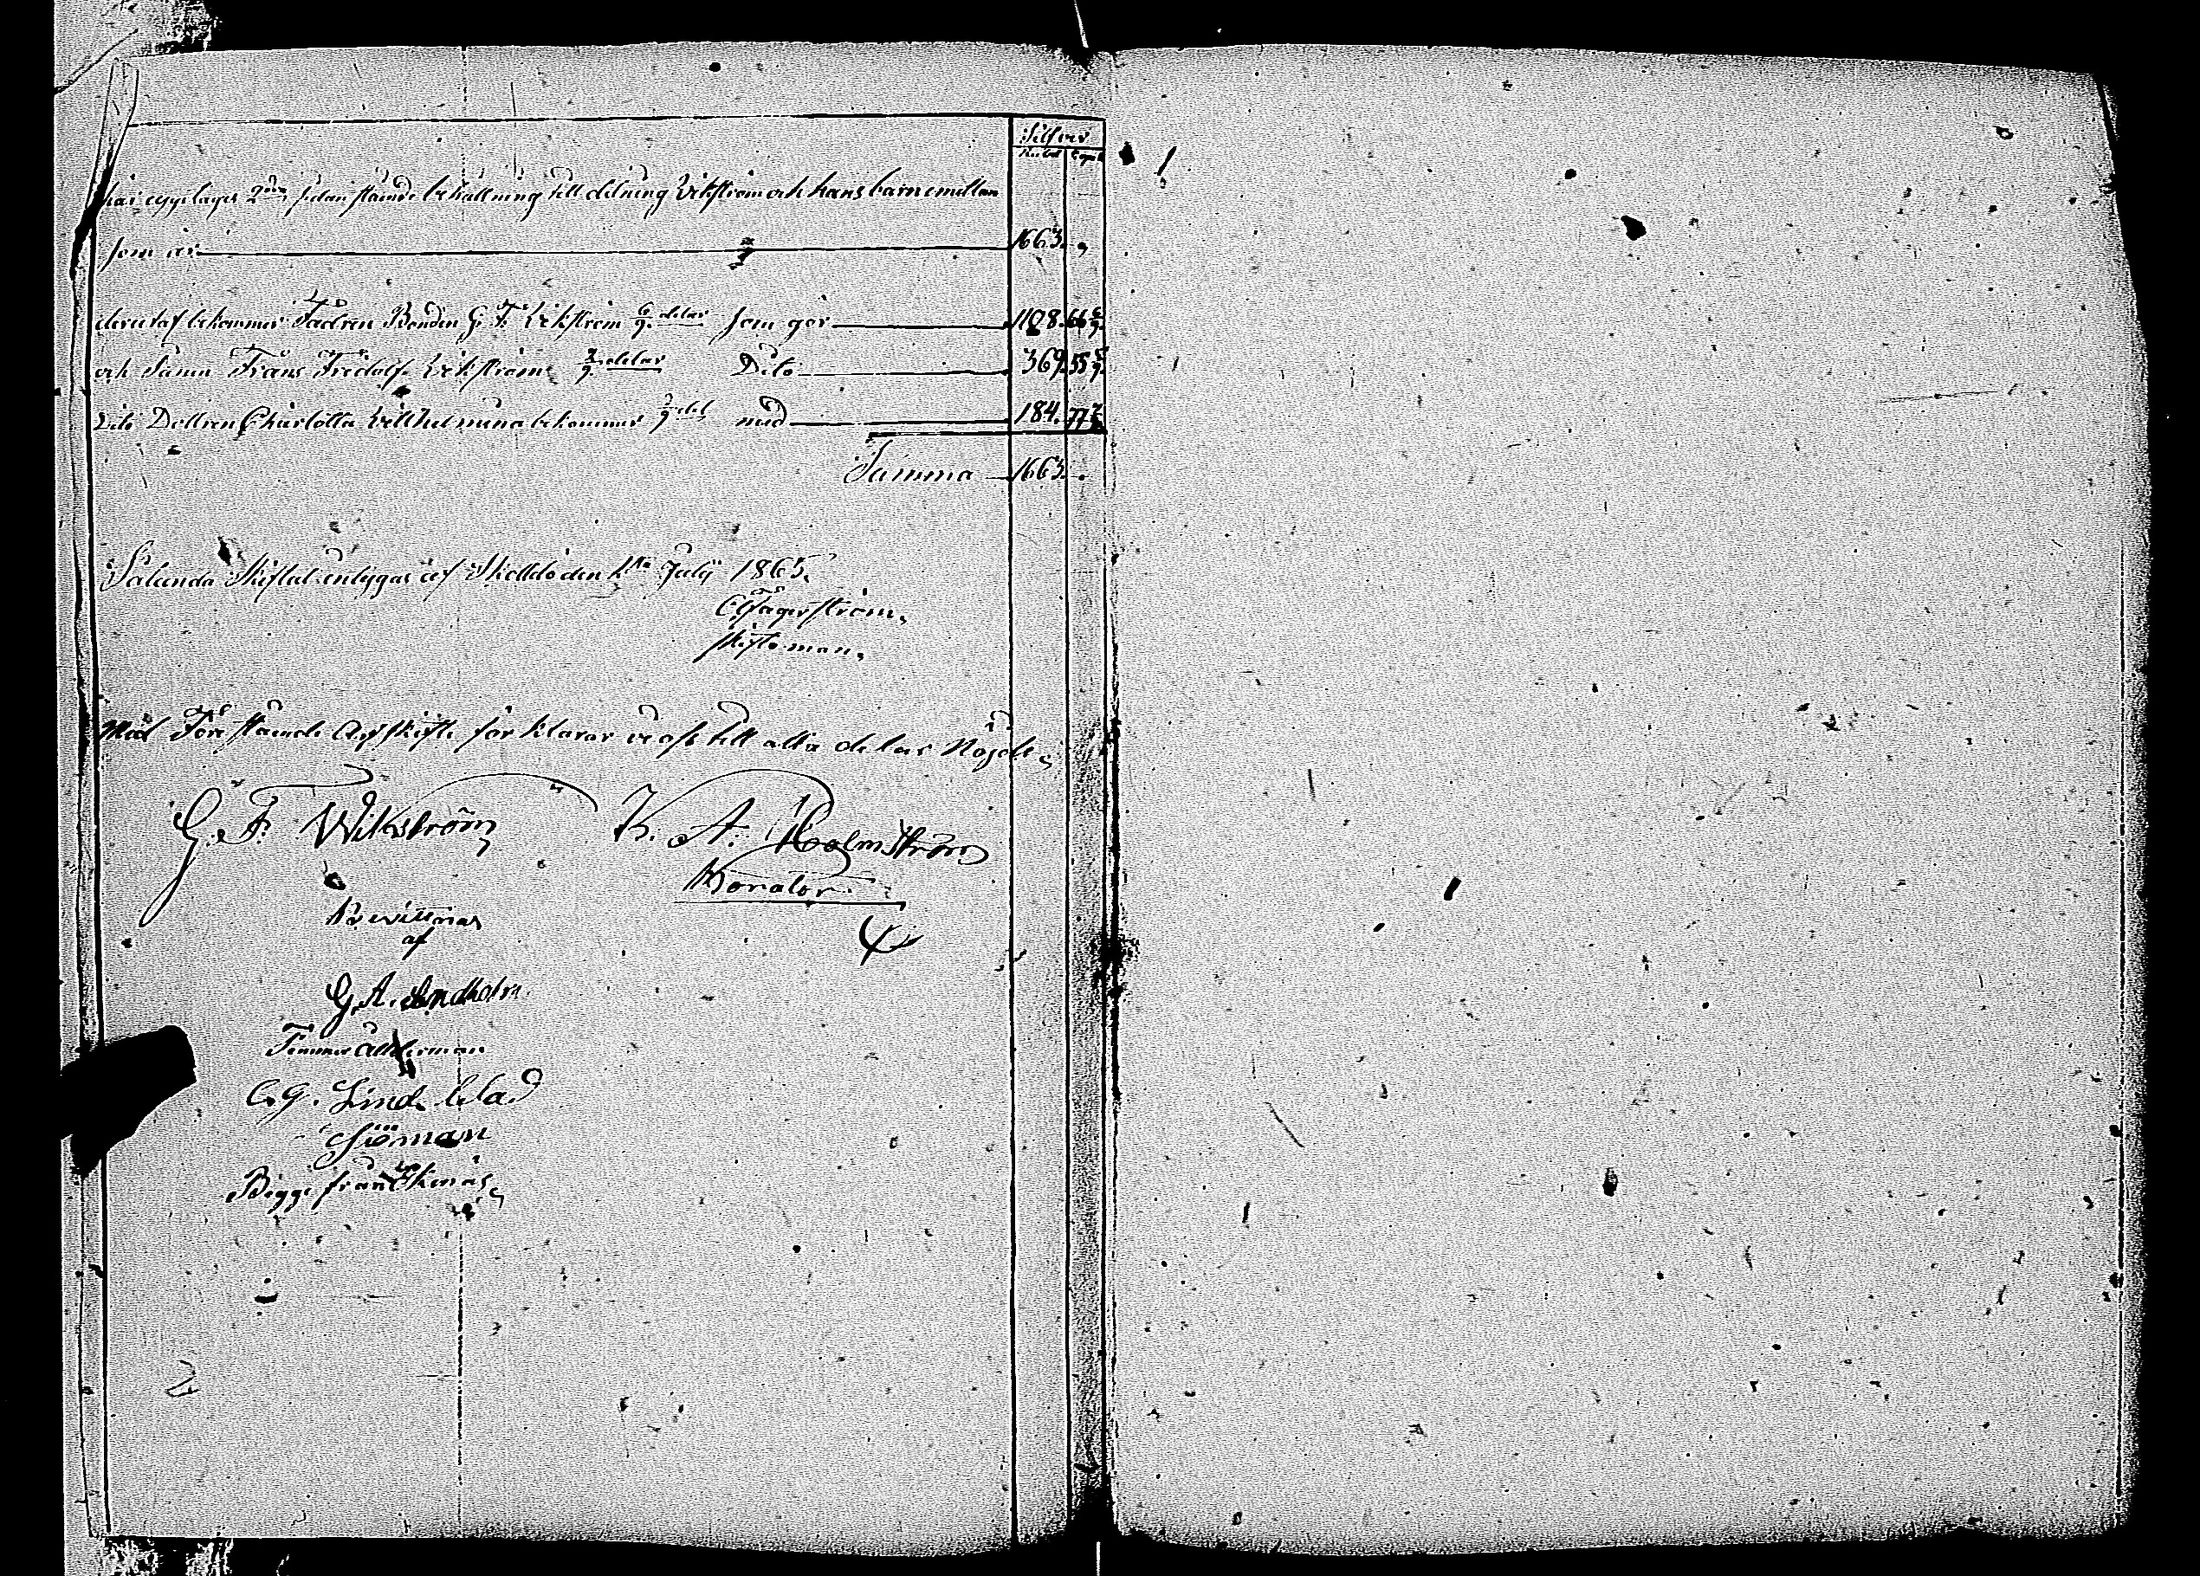 Silfver
Rubel Copek
här upptages 2dra sidan stående behållning till delning Vikström och hans barn emellan
som är 1663. „
derutaf bekommer Fadren Bonden G. F. Vikström 6/9 delar som gör 1108. 66 6/9
och Sånen Frans Fridolf Vikström 2/9 delar Dito 369. 55 5/9
Dito Dottren Charlotta Villhelmina bekommer 1/9 del med 184. 77 7/9
Summa 1663. „
Sålunda Skiftat intygas af Skolldö den Juli 1863.
Fagerström,
skiftesman,
Med Före stående Arfskifte förklarar vi oss till alla delar Nöjde,
G. F. Wikström K. A. Holmström
Korator
Bevittnas
af
G. A. Lindholm
Åkerman
C. G. Lindeblad
Sjöman
Begge från Ekenäs,